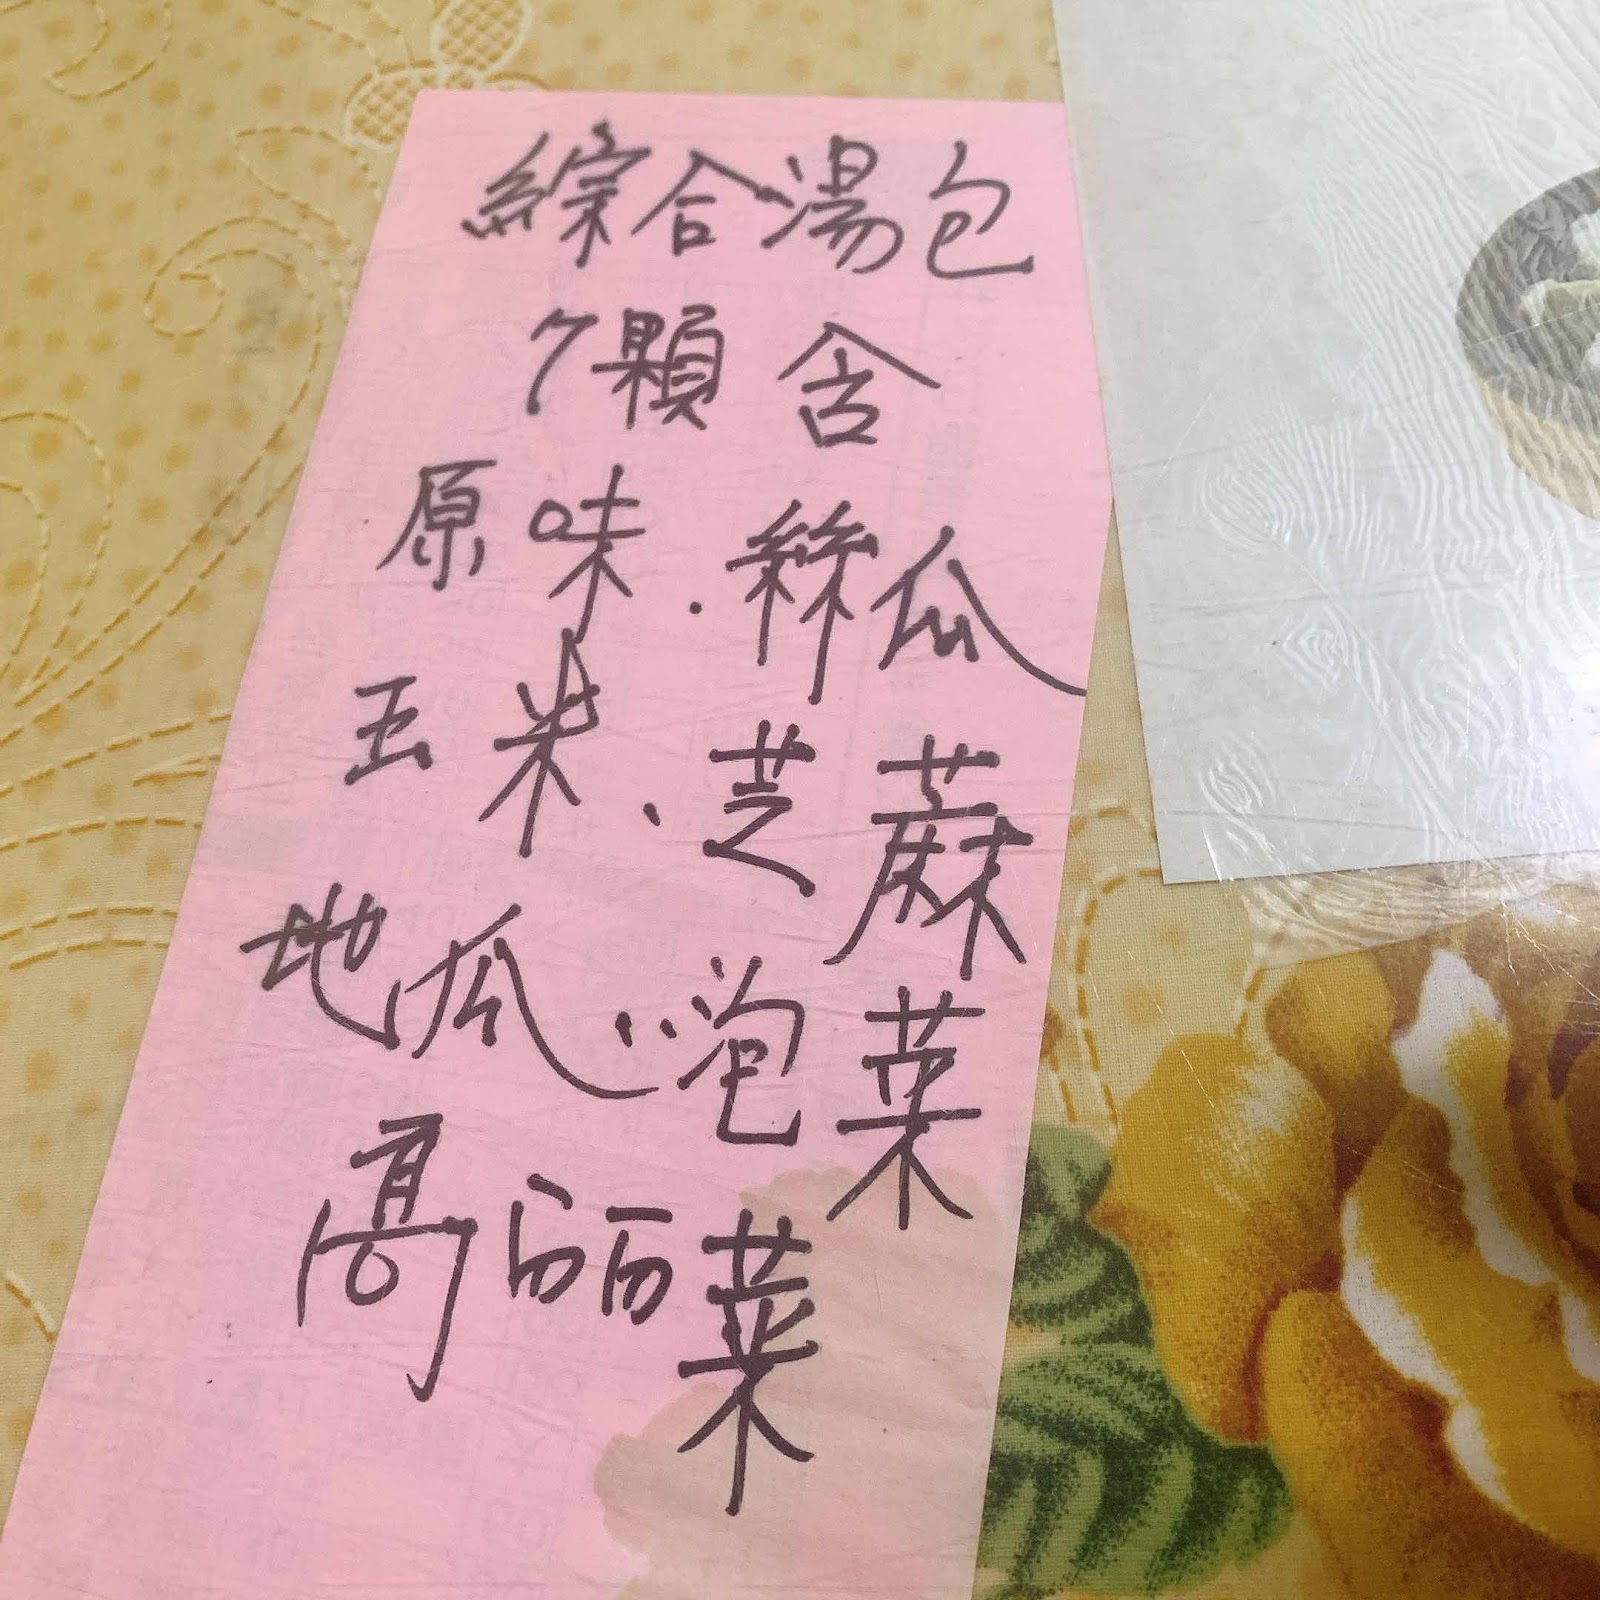 綜合湯包
7顆 含
原味.絲瓜
玉米.芝蔴
地瓜.泡菜
高麗菜